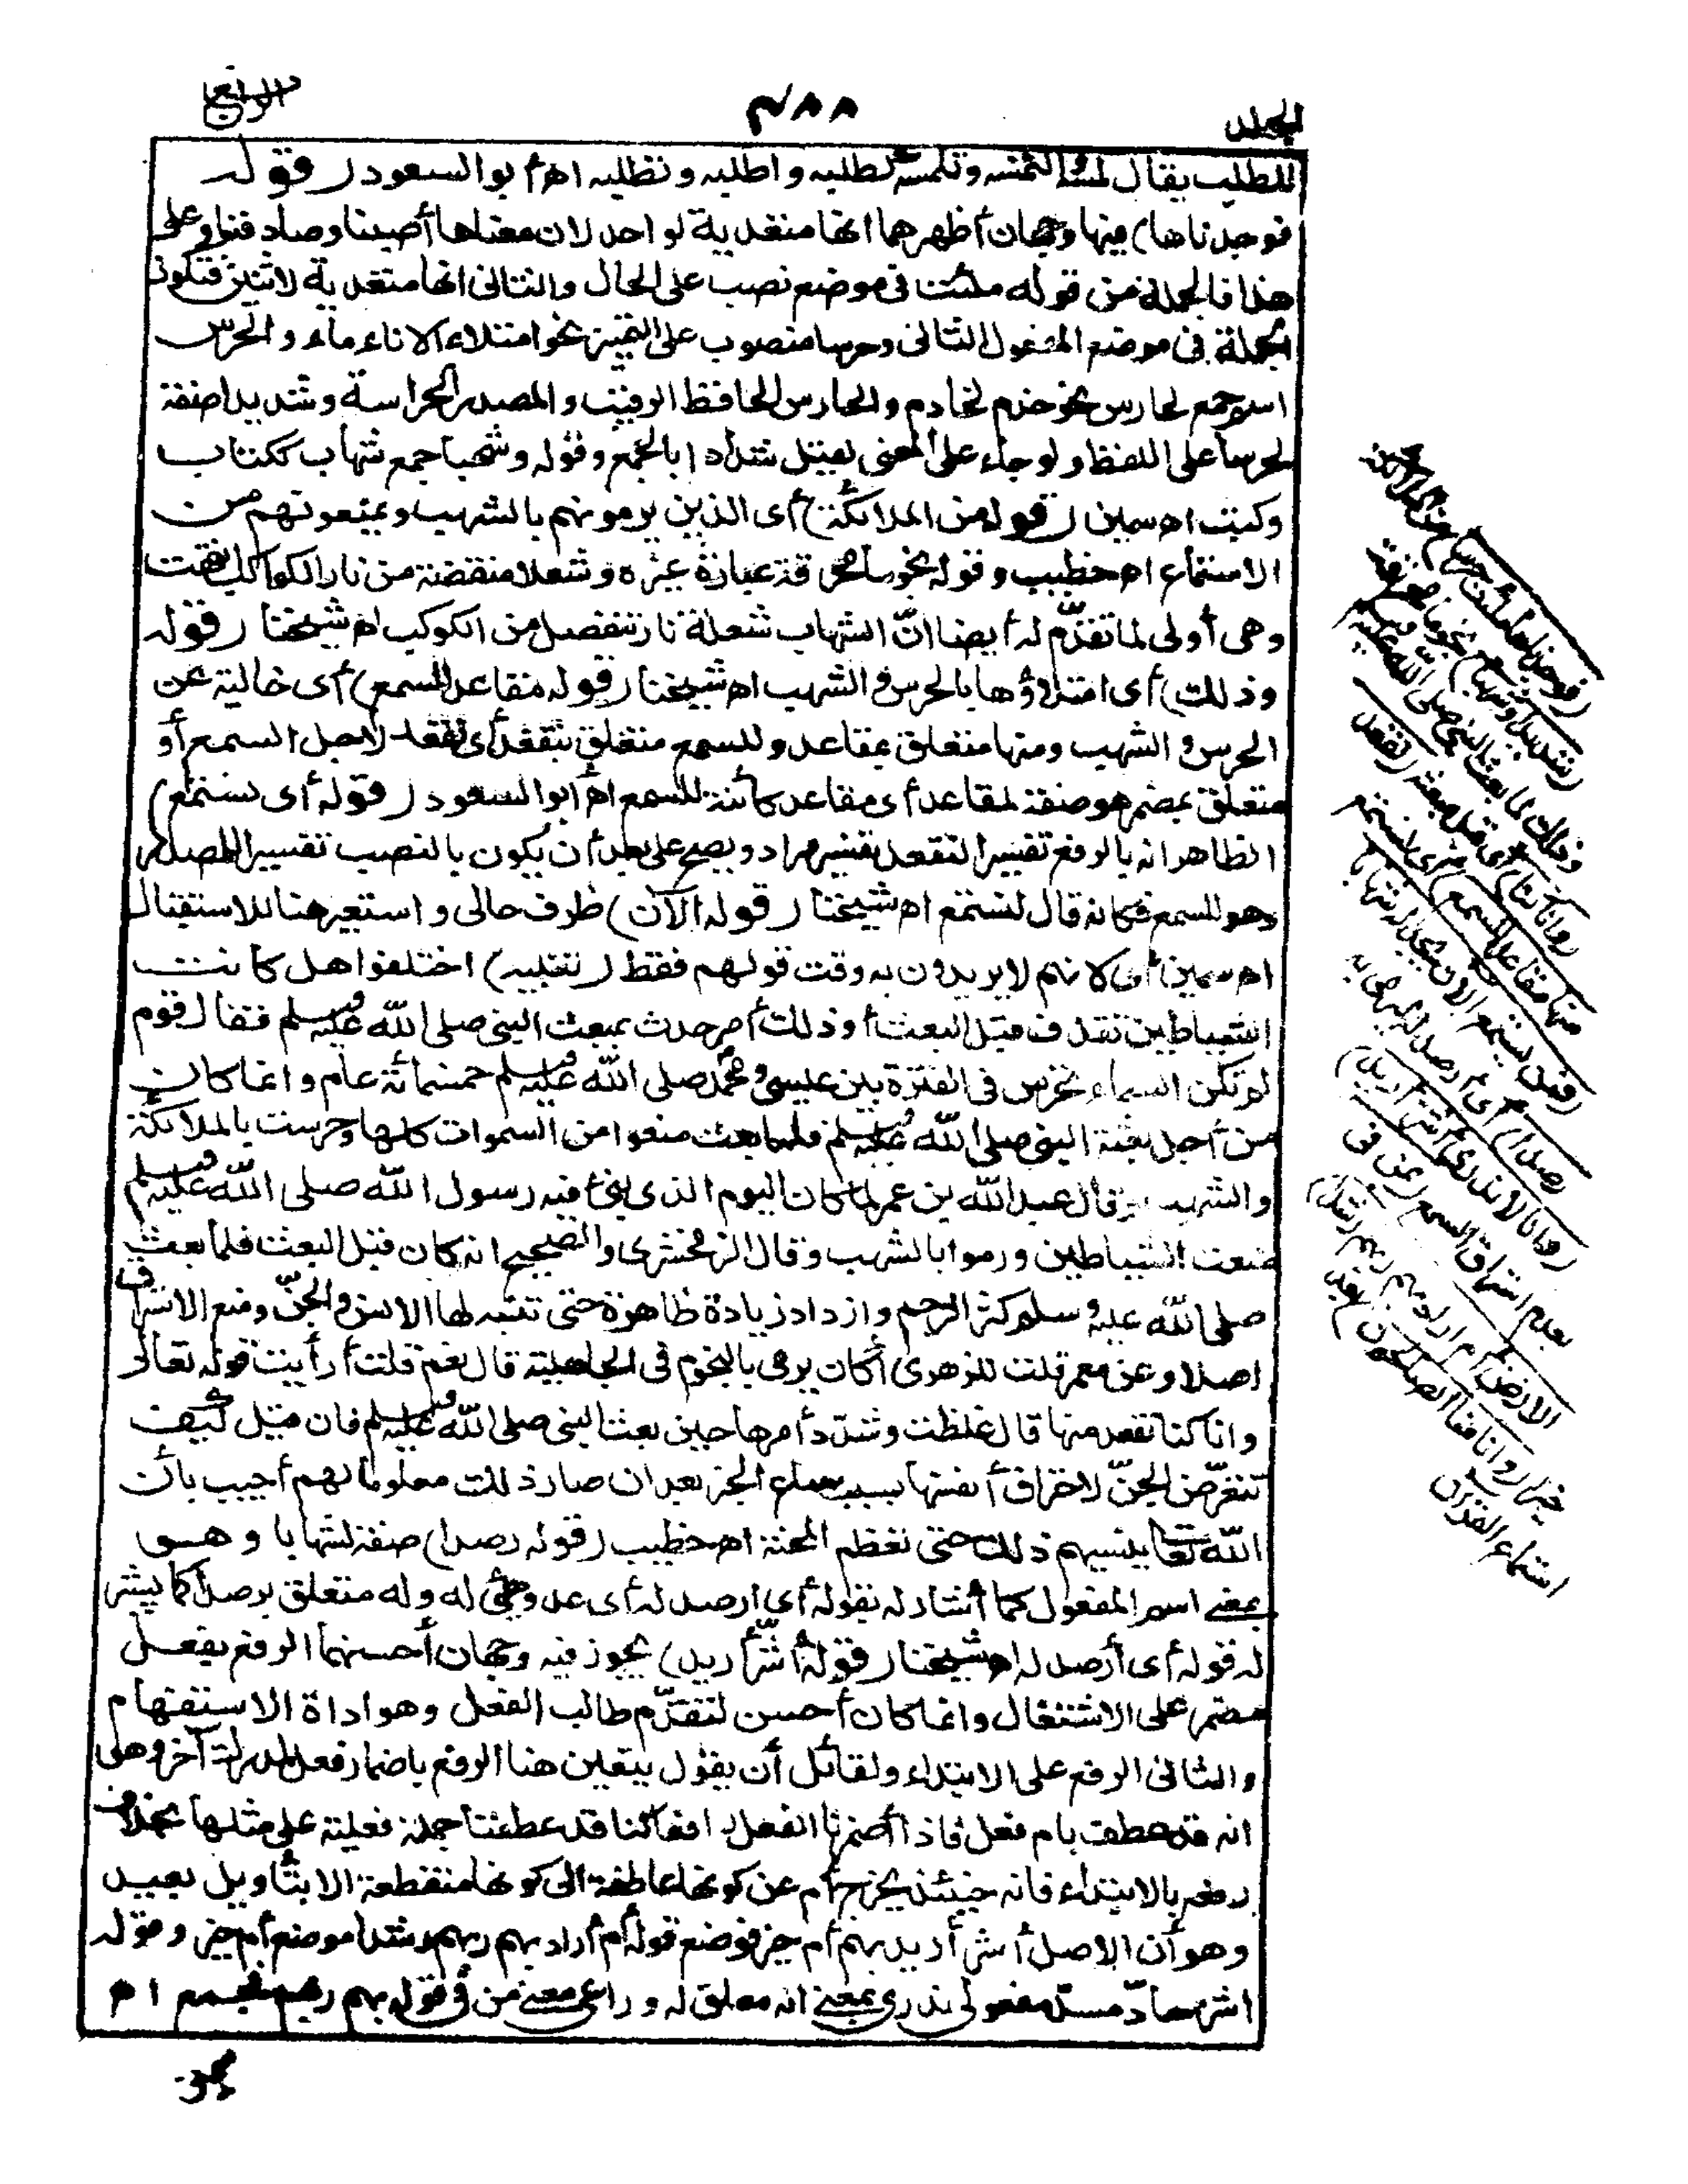 الجلد
٤٨٨
الرابع
للطلب يقال لمسه التمسه وتلمسه كطلبه واطلبه وتطلبه اه أبو السعود (قوله
فوجدناها) فيها وجهان أظهرهما انها متعدية لواحد لان معناها أصبنا وصادفنا وعلى
هذا فالجملة من قوله ملئت فى موضع نصب على الحال والثانى انها متعدية لاثنين فتكون
الجملة فى موضع المفعول الثانى وحرسا منصوب على التمييز نحو امتلاء الاناء ماء والحرس
اسم جمع لحارس نحو خدم لخادم والحارس الحافظ الرقيب والمصدر الحراسة وشديدا صفة
لحرسا على اللفظ ولو جاء على المعنى لقيل شدادا بالجمع وقوله وشهبا جمع شهاب ككتاب
وكتب اه سمين (قوله من الملائكة) أى الذين يرمونهم بالشهب ويمنعونهم من
الاستماع اه خطيب وقوله نجوما محرقة عبارة غيره وشعلا منقضة من نار الكواكب انتهت
وهى أولى لما تقدّم له أيضا انّ الشهاب شعلة نار تنفصل من الكوكب اه شيخنا (قوله
وذلك) أى امتلاؤها بالحرس والشهب اه شيخنا (قوله مقاعد للسمع) أى خالية عن
الحرس والشهب ومنها متعلق بمقاعد وللسمع متعلق بنقعد أى نقعد لاجل السمع أو
متعلق بمضمر هو صفة لمقاعد أى مقاعد كائنة للسمع اه أبو السعود (قوله أى نستمع)
الظاهر انه بالرفع تفسيرا لنقعد تفسير مراد ويصح على بعد أن يكون بالنصب تفسيرا للمصدر
وهو للسمع فكانه قال لنستمع اه شيخنا (قوله الآن) ظرف حالى واستعير هنا للاستقبال
اه سمين أى لانهم لا يريدون به وقت قولهم فقط (تنبيه) اختلفوا هل كانت
الشياطين تقذف قبل البعث أو ذلك أمر حدث بمبعث النبى صلى الله عليه وسلم فقال قوم
لم تكن السماء تحرس فى الفترة بين عيسى ومحمد صلى الله عليه وسلم خمسمائة عام وانما كان
من أجل بعثة النبى صلى الله عليه وسلم فلما بعث منعوا من السموات كلها وحرست بالملائكة
والشهب وقال عبد الله بن عمر لما كان اليوم الذى نبئ فيه رسول الله صلى الله عليه وسلم
منعت الشياطين ورموا بالشهب وقال الزمخشرى والصحيح انه كان قبل البعث فلما بعث
صلى الله عليه وسلم كثر الرجم وازداد زيادة ظاهرة حتى تنبه لها الانس والجنّ ومنع الاستراق
اصلا وعن معمر قلت للزهرى أكان يرمى بالنجوم فى الجاهلية قال نعم قلت أرأيت قوله تعالى
وانا كنا نقعد منها قال غلظت وشدّد أمرها حين بعث النبى صلى الله عليه وسلم فان قيل كيف
تتعرّض الجنّ لاحتراق أنفسها بسبب سماع الخبر بعد ان صار ذلك معلوما لهم أجيب بأن
الله تعالى ينسيهم ذلك حتى تعظم المحنة اه خطيب (قوله رصدا) صفة لشهابا وهو
بمعنى اسم المفعول كما أشار له بقوله أى ارصد له أى عد وهيئ له وله متعلق برصدا كما يشير
له قوله أى أرصد له اه شيخنا (قوله أشرّ أريد) يجوز فيه وجهان أحسنهما الرفع بفعل
مضمر على الاشتغال وانما كان أحسن لتقدّم طالب الفعل وهو اداة الاستفهام
والثانى الرفع على الابتداء ولقائل أن يقول يتعين هنا الرفع باضمار فعل لمدرك آخر وهو
انه قد عطف بام فعل فاذا أضمرنا الفعل رافعا كنا قد عطفنا جملة فعلية على مثلها بخلاف
رفعه بالابتداء فانه حينئذ يخرج أم عن كونها عاطفة الى كونها منقطعة الا بتأويل بعيد
وهو أن الاصل أشر أريد بهم أم خير فوضع قوله أم أراد بهم ربهم رشدا موضع أم خير وقوله
اشر سادّ مسدّ مفعولى ندرى بمعنى انه معلق له وراعى معنى من فى قوله بهم ربهم فجمع اه
(فوجدناها ملئت حرسا) من الملائكة
(شديدا وشهبا) نجوما محرقة
وذلك لما بعث النبى صلى الله عليه
(وانا كنا) أى قبل مبعثه (نقعد
منها مقاعد للسمع) أى نستمع
(فمن يستمع الآن يجد له شهابا
رصدا) أى أرصد له ليرمى به
(وانا لا ندرى أشرّ أريد)
بعدم استراق السمع (بمن فى
الارض أم أراد بهم ربهم رشدا)
خيرا (وانا منا الصالحون) بعد
استماع القرآن